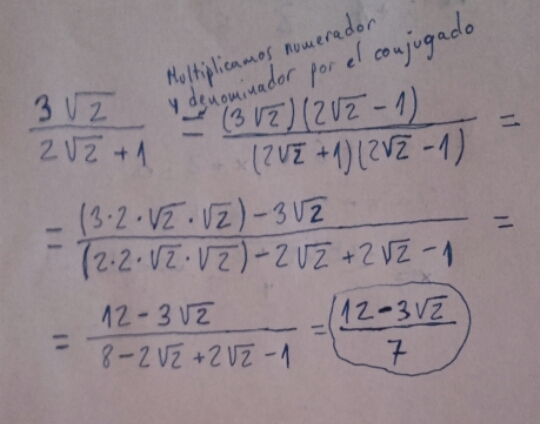 Multiplicamos numerador
y denominador por el conjugado
3√2 / 2√2 + 1 = (3√2)(2√2 - 1) / (2√2 + 1)(2√2 - 1) =
= (3·2·√2·√2) - 3√2 / (2·2·√2·√2) - 2√2 + 2√2 - 1 =
= 12 - 3√2 / 8 - 2√2 + 2√2 - 1 = 12 - 3√2 / 7